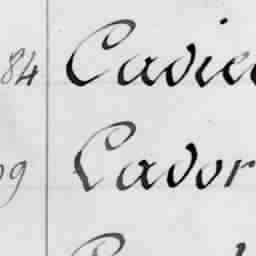 84 Cavie
09 Lavor